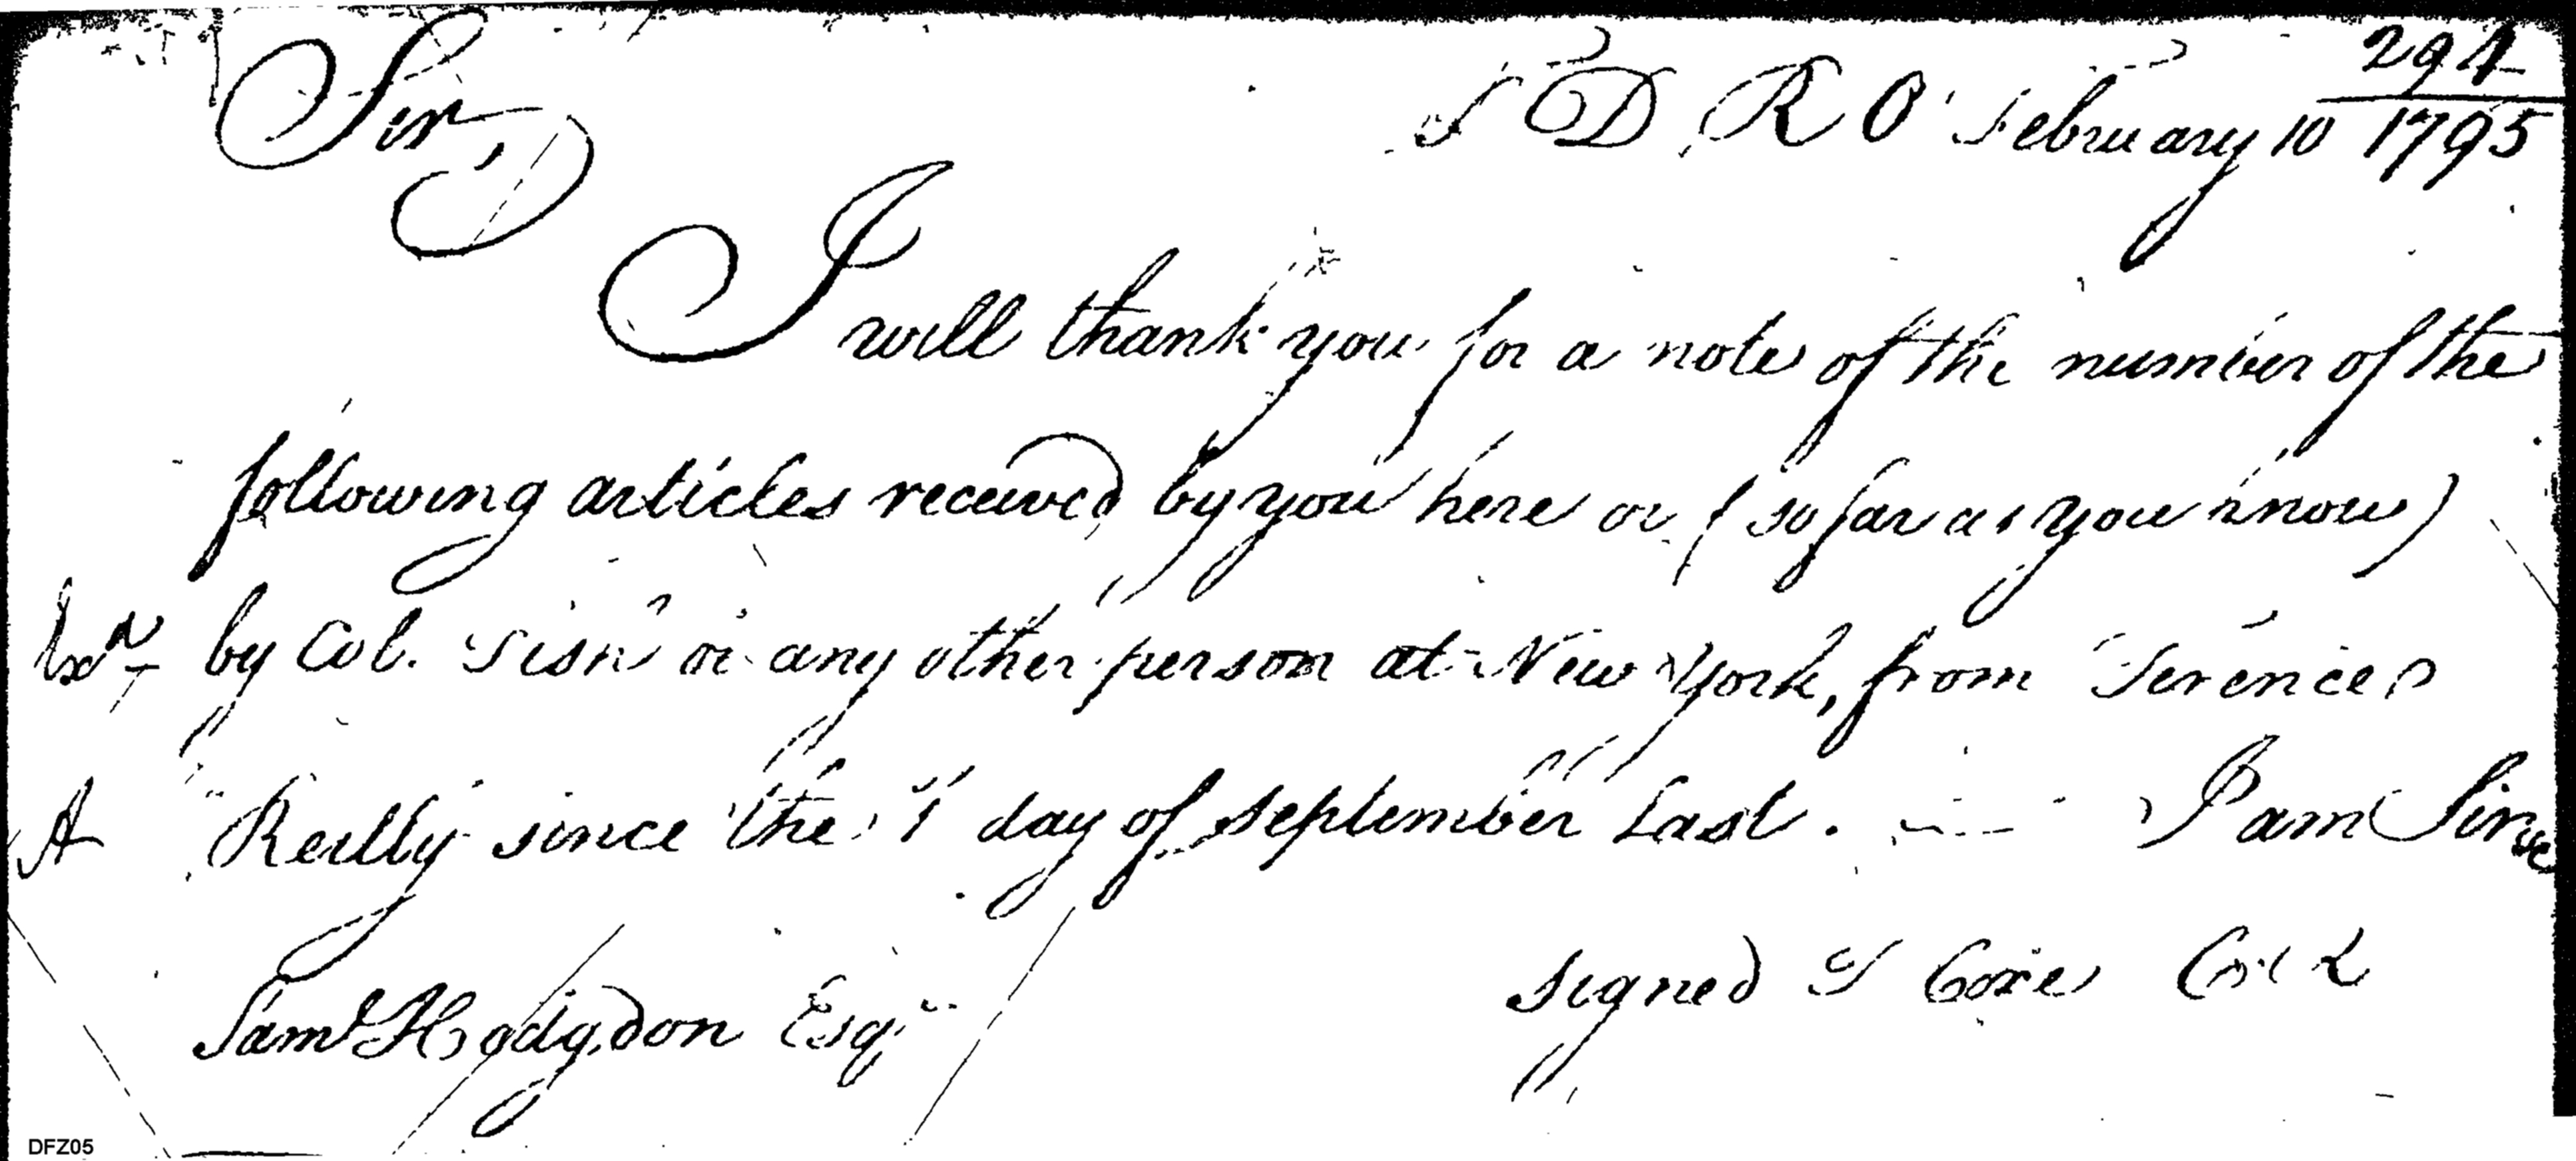 294
Sir, T D R O February 10 1795
I will thank you for a note of the number of the
following articles received by you here or (so far as you know)
by Col. Fish or any other person at New York, from Terence
A Reilly since the 1 day of September last. I am Sir
signed T Coxe
Saml Hodgdon Esqr
DFZ05